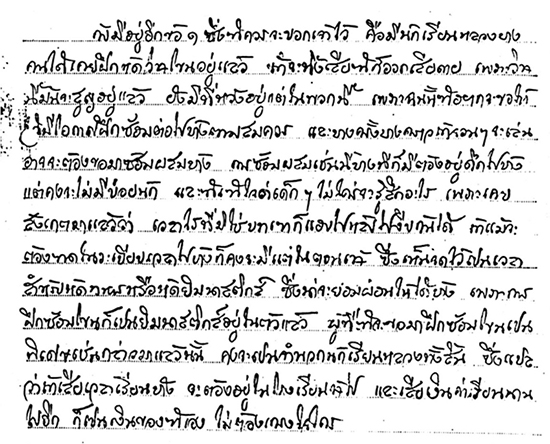 ยังมีอยู่อีกข้อ ๑ ซึ่งพึงควรจะบอกเอาไว้ คือมีนักเรียนหลวงบาง
คนได้เคยฝึกหัดโขนอยู่แล้ว
นี้มันจะสูญอยู่แล้ว ยังมีที่หวังอยู่แต่ในพวกนี้ เพราะฉะนั้นต้องขอให้
ได้มีโอกาสฝึกซ้อมต่อไปบ้างตามสมควร และบางครั้งบางคราวเวลาจะเล่น
อาจจะต้องขอมาซ้อมผสมบ้าง การซ้อมผสมเช่นนี้บางทีก็มีต้องอยู่ดึกไปบ้าง
แต่คงจะไม่มีบ่อยนัก และเด็ก ๆ ไม่ใคร่จะรู้สึกอะไร เพราะเคย
สังเกตมาแล้วว่า เวลาใดที่ไม่ใช่บทเขาก็แอบไปหลับไปงีบกันได้ ถ้าแม้จะ
ต้องขาดในระเบียบเวลาไปบ้างก็คงจะมีแต่ในตอนเช้า ซึ่งเห็นจัดไว้เป็นเวลา
สำหรับเดินทหารหรือหัดยิมนาสติกส์ ซึ่งน่าจะยอมผ่อนให้ได้บ้าง เพราะการ
ฝึกซ้อมโขนก็เป็นยิมนาสติกส์อยู่ในตัวแล้ว ผู้ที่จะมาฝึกซ้อมโขนเป็น
พิเศษเช่นกล่าวมาแล้วนั้น คงจะเป็นจำพวกนักเรียนหลวงทั้งสิ้น ซึ่งแปล
ว่าถ้าเสียเวลาเรียนบ้าง จะต้องอยู่ในโรงเรียนช้าไป และเสียเงินค่าเรียนนาน
ไปอีก ก็เป็นเงินของข้าเอง ไม่ต้องเกรงใจใคร